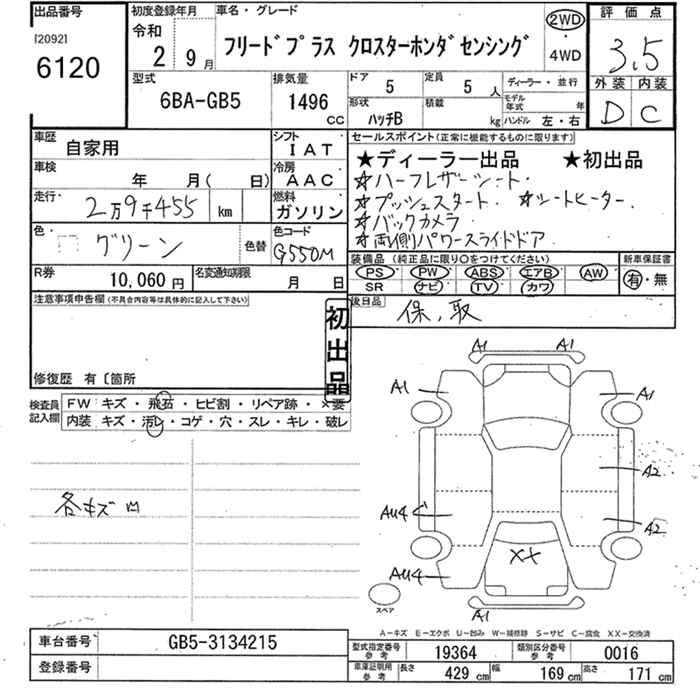 出品番号
[2092]
6120
初度登録年月
令和
2 9月
車名・グレード
フリードプラス クロスターホンダセンシング
2WD
・
4WD
評価点
3.5
外装 内装
D C
型式
6BA-GB5
排気量
1496
CC
ドア
5
定員
5 人
形状
ハッチB
積載
kg
ディーラー・並行
モデル年式 年
ハンドル 左・右
車歴
自家用
シフト
IAT
車検
年 月( 日)
冷房
AAC
走行・
2万9千455 km
燃料
ガソリン
色・
グリーン
色替
色コード
G550M
R券
10,060円
名変通知期限
月 日
セールスポイント(正常に機能するものに限ります)
★ディーラー出品 ★初出品
☆ハーフレザーシート・
☆プッシュスタート・ ☆シートヒーター・
☆バックカメラ
☆両側パワースライドドア
装備品 (純正品に限り○をつけてください)
PS PW ABS エアB AW
SR ナビ TV カワ
新車保証書
有・無
後日品
保、取
注意事項申告欄(不具合内容等は具体的に記入して下さい)
初出品
修復歴 有〔箇所
検査員記入欄
FW キズ・飛石・ヒビ割・リペア跡・×要
内装 キズ・汚レ・コゲ・穴・スレ・キレ・破レ
各キズ凹
A1 A1
A1 A1
A2
AU4
A2
AU4
XX
A1
スペア
A―キズ E―エクボ U―凹み W―補修跡 S―サビ C―腐食 XX―交換済
車台番号
GB5-3134215
登録番号
型式指定番号 参考
19364
類別区分番号 参考
0016
車庫証明用 参考
長さ 429 cm
幅 169 cm
高さ 171 cm